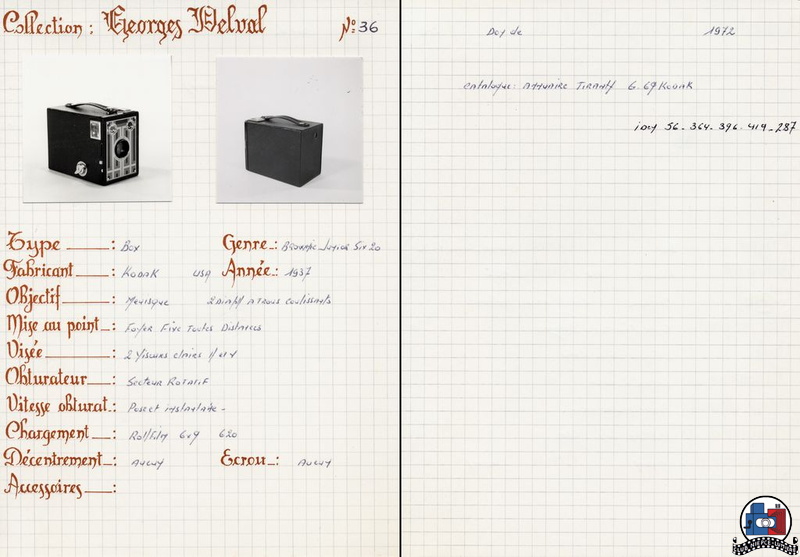 Collection : Georges Delval N° 36
Type : Box
Genre : Brownie Junior Six 20
Fabricant : Kodak USA
Année : 1937
Objectif : Menisque 2 Diaph a trous coulissants
Mise au point : Foyer Fixe Toutes Distances
Visée : 2 Viseurs clairs H et V
Obturateur : Secteur Rotatif
Vitesse obturat. : Pose et instantané -
Chargement : Rollfilm 6x9 620
Décentrement : Aucun
Ecrou : Aucun
Accessoires :
Doy de 1972
Catalogue: Annuaire 6.69 Kodak
56 - 364 - 396 - 419 - 287